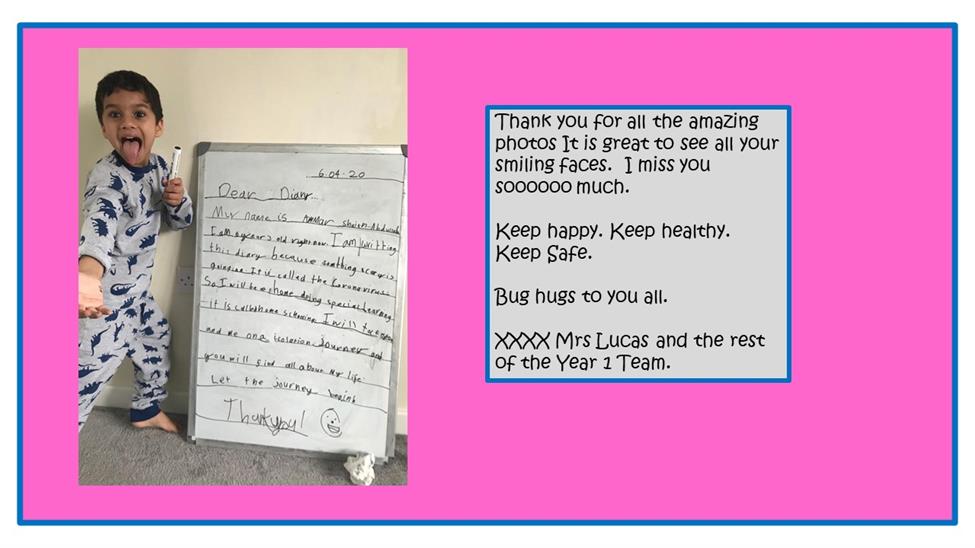 6.04.20
Dear Diary...
My name is
I am years old right now. I am writting
this diary because somthing scary is
going on It is called the Coronavirus
So I will be @ home doing special learning
It is called home schooling I will
and me on a Isolation Journey and
you will find all about My life.
Let the journey begin!
Thankyou!
Thank you for all the amazing
photos It is great to see all your
smiling faces. I miss you
soooooo much.
Keep happy. Keep healthy.
Keep Safe.
Bug hugs to you all.
XXXX Mrs Lucas and the rest
of the Year 1 Team.